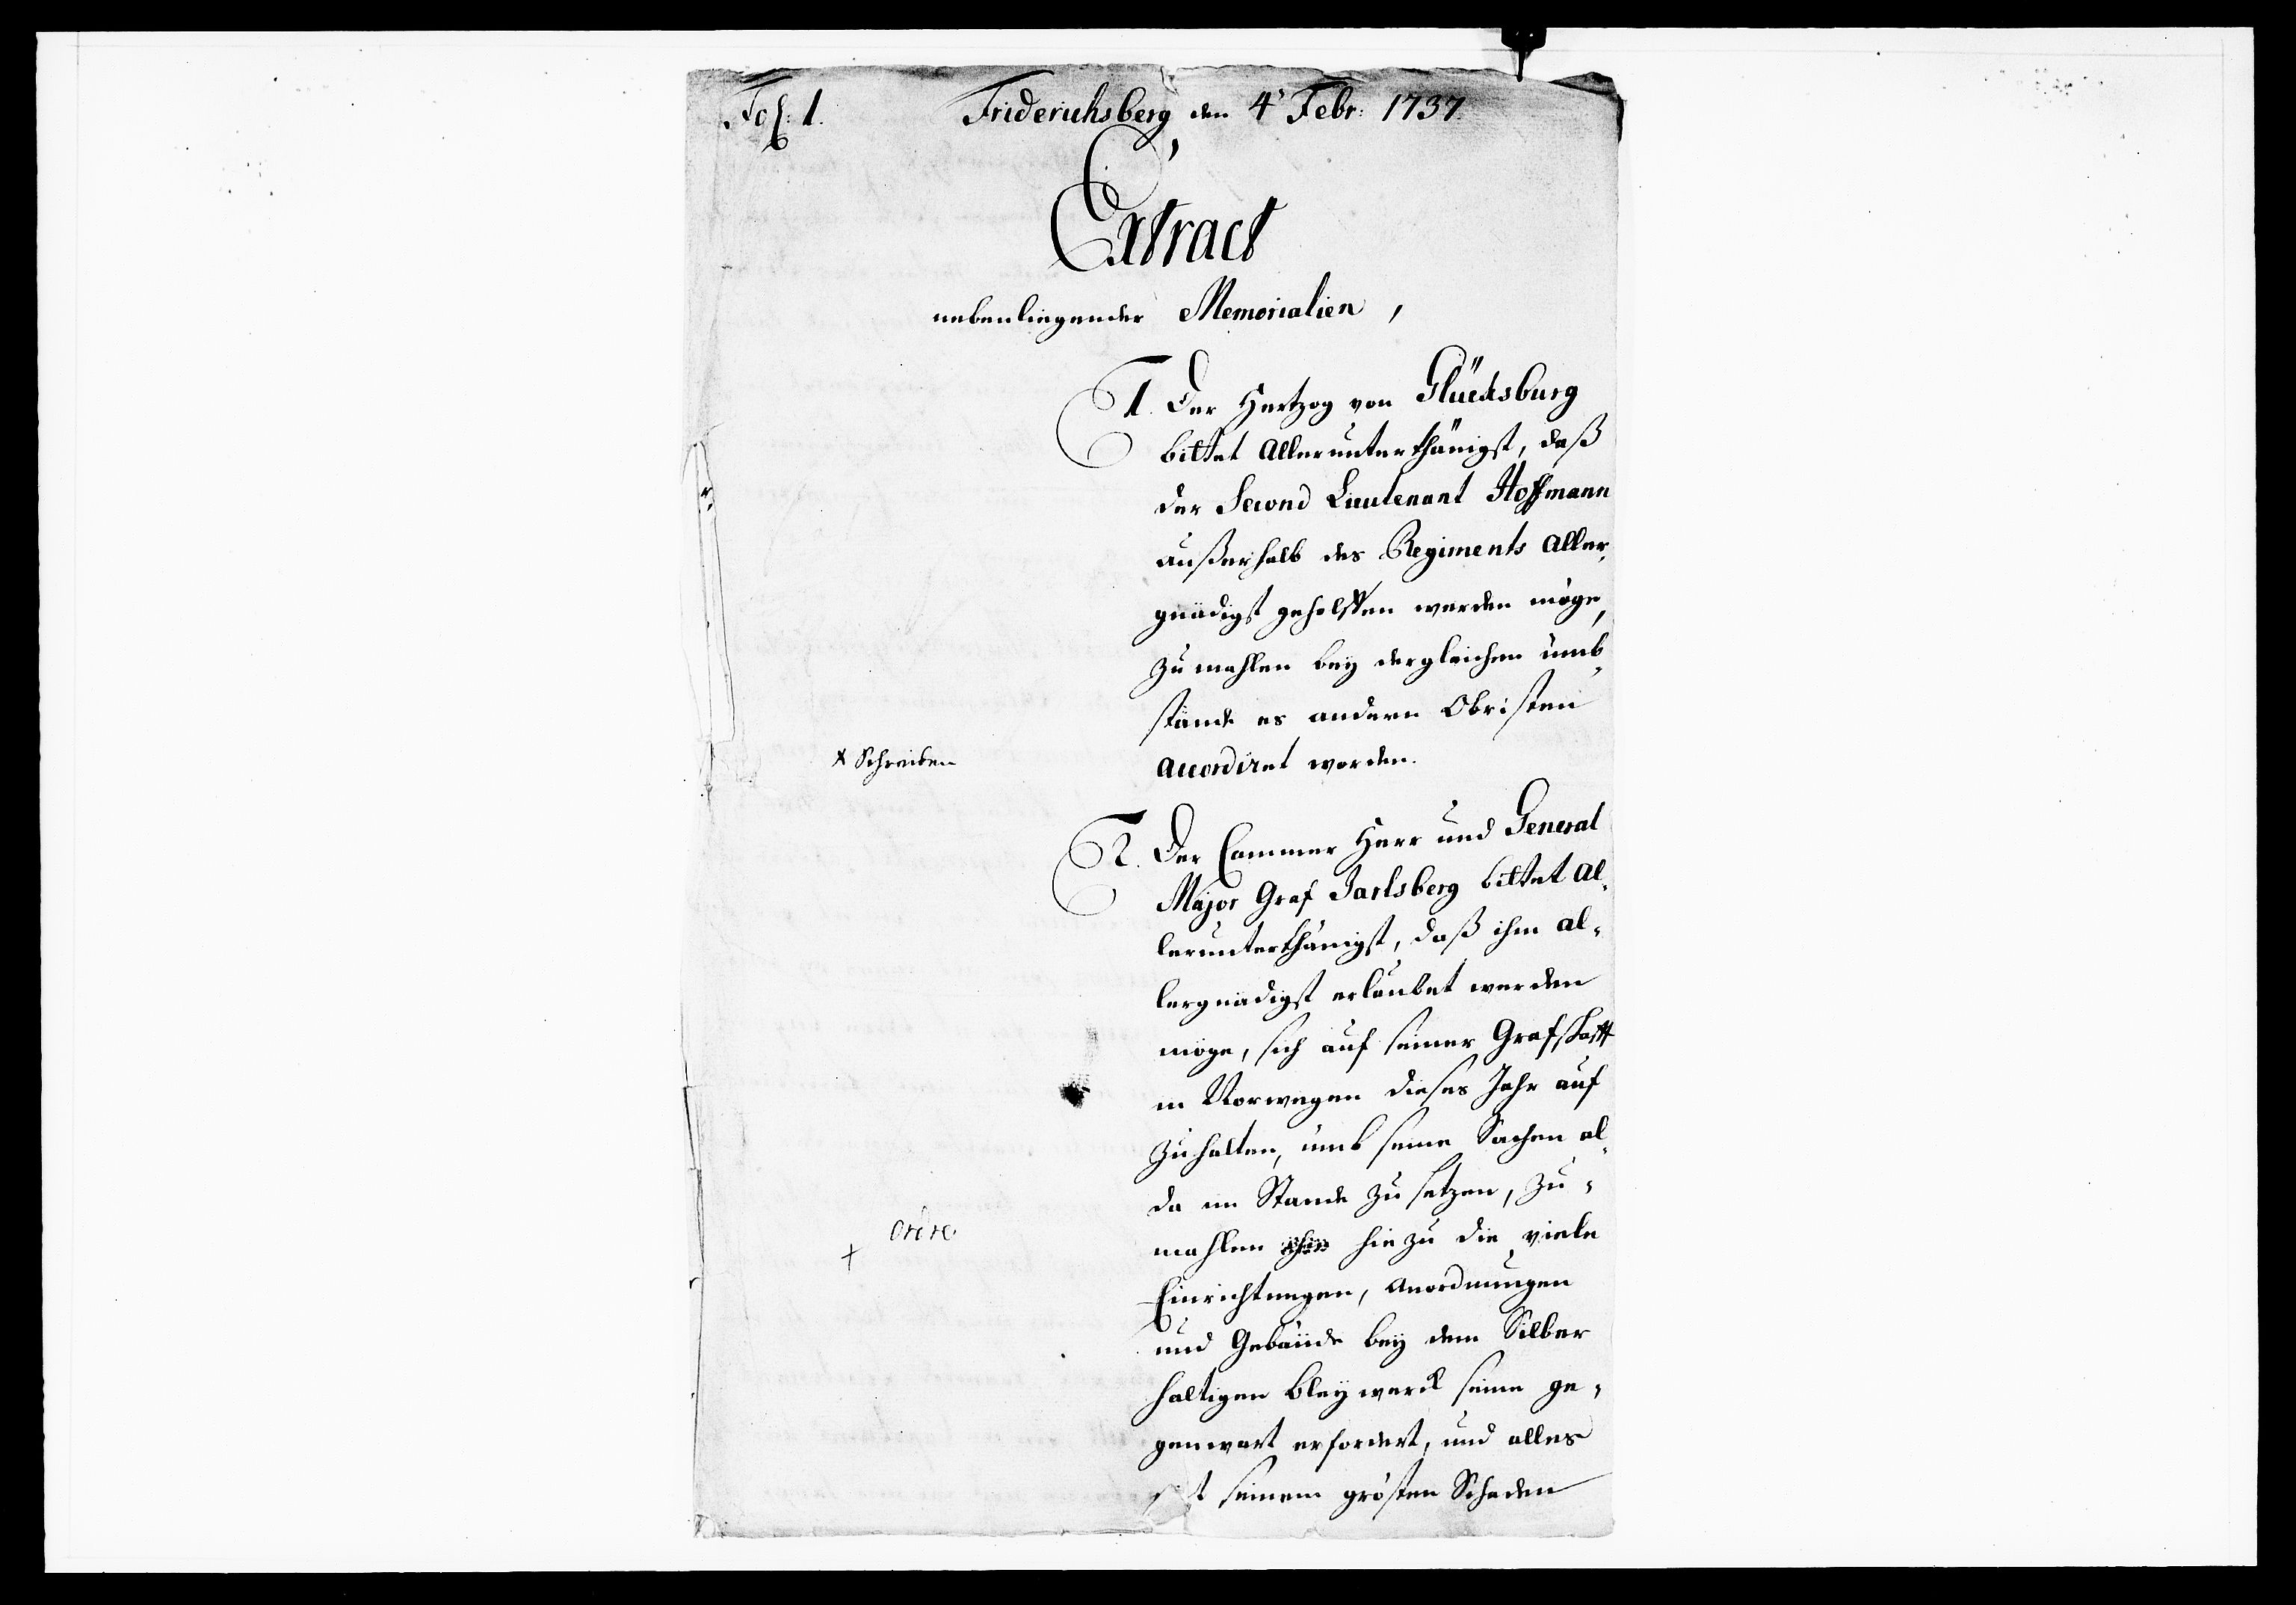 Fol: 1.
Friderichsberg den 4' Febr: 1737.
Extract
nebenliegender Memorialien,
1. Der Hertzog von Glücksburg
bittet Allerunterthänigst, daß
der Second Lieutenant Hoffmann
außerhalb des Regiments Aller,
gnädigst geholffen werden möge,
zumahlen bey dergleichen ümb,
stände es andern Obristen
accordiret worden.
x Schreiben
2. Der Cammer Herr und General
Major Graf Jarlsberg bittet al,
lerunterthänigst, daß ihm al,
lergnädigst erlaubet werden
möge, sich auf seiner Grafschafft
in Norwegen dieses Jahr auf
zuhalten, umb seine Sachen al,
da im Stande zu setzen, zu,
mahlen hiezu die viele
ordre
+
Einrichtungen, Anordnungen
und Gebäude bey dem Silber
haltigen Bleywerck seine ge,
genwart erfordert, und alles
seinem grösten Schaden